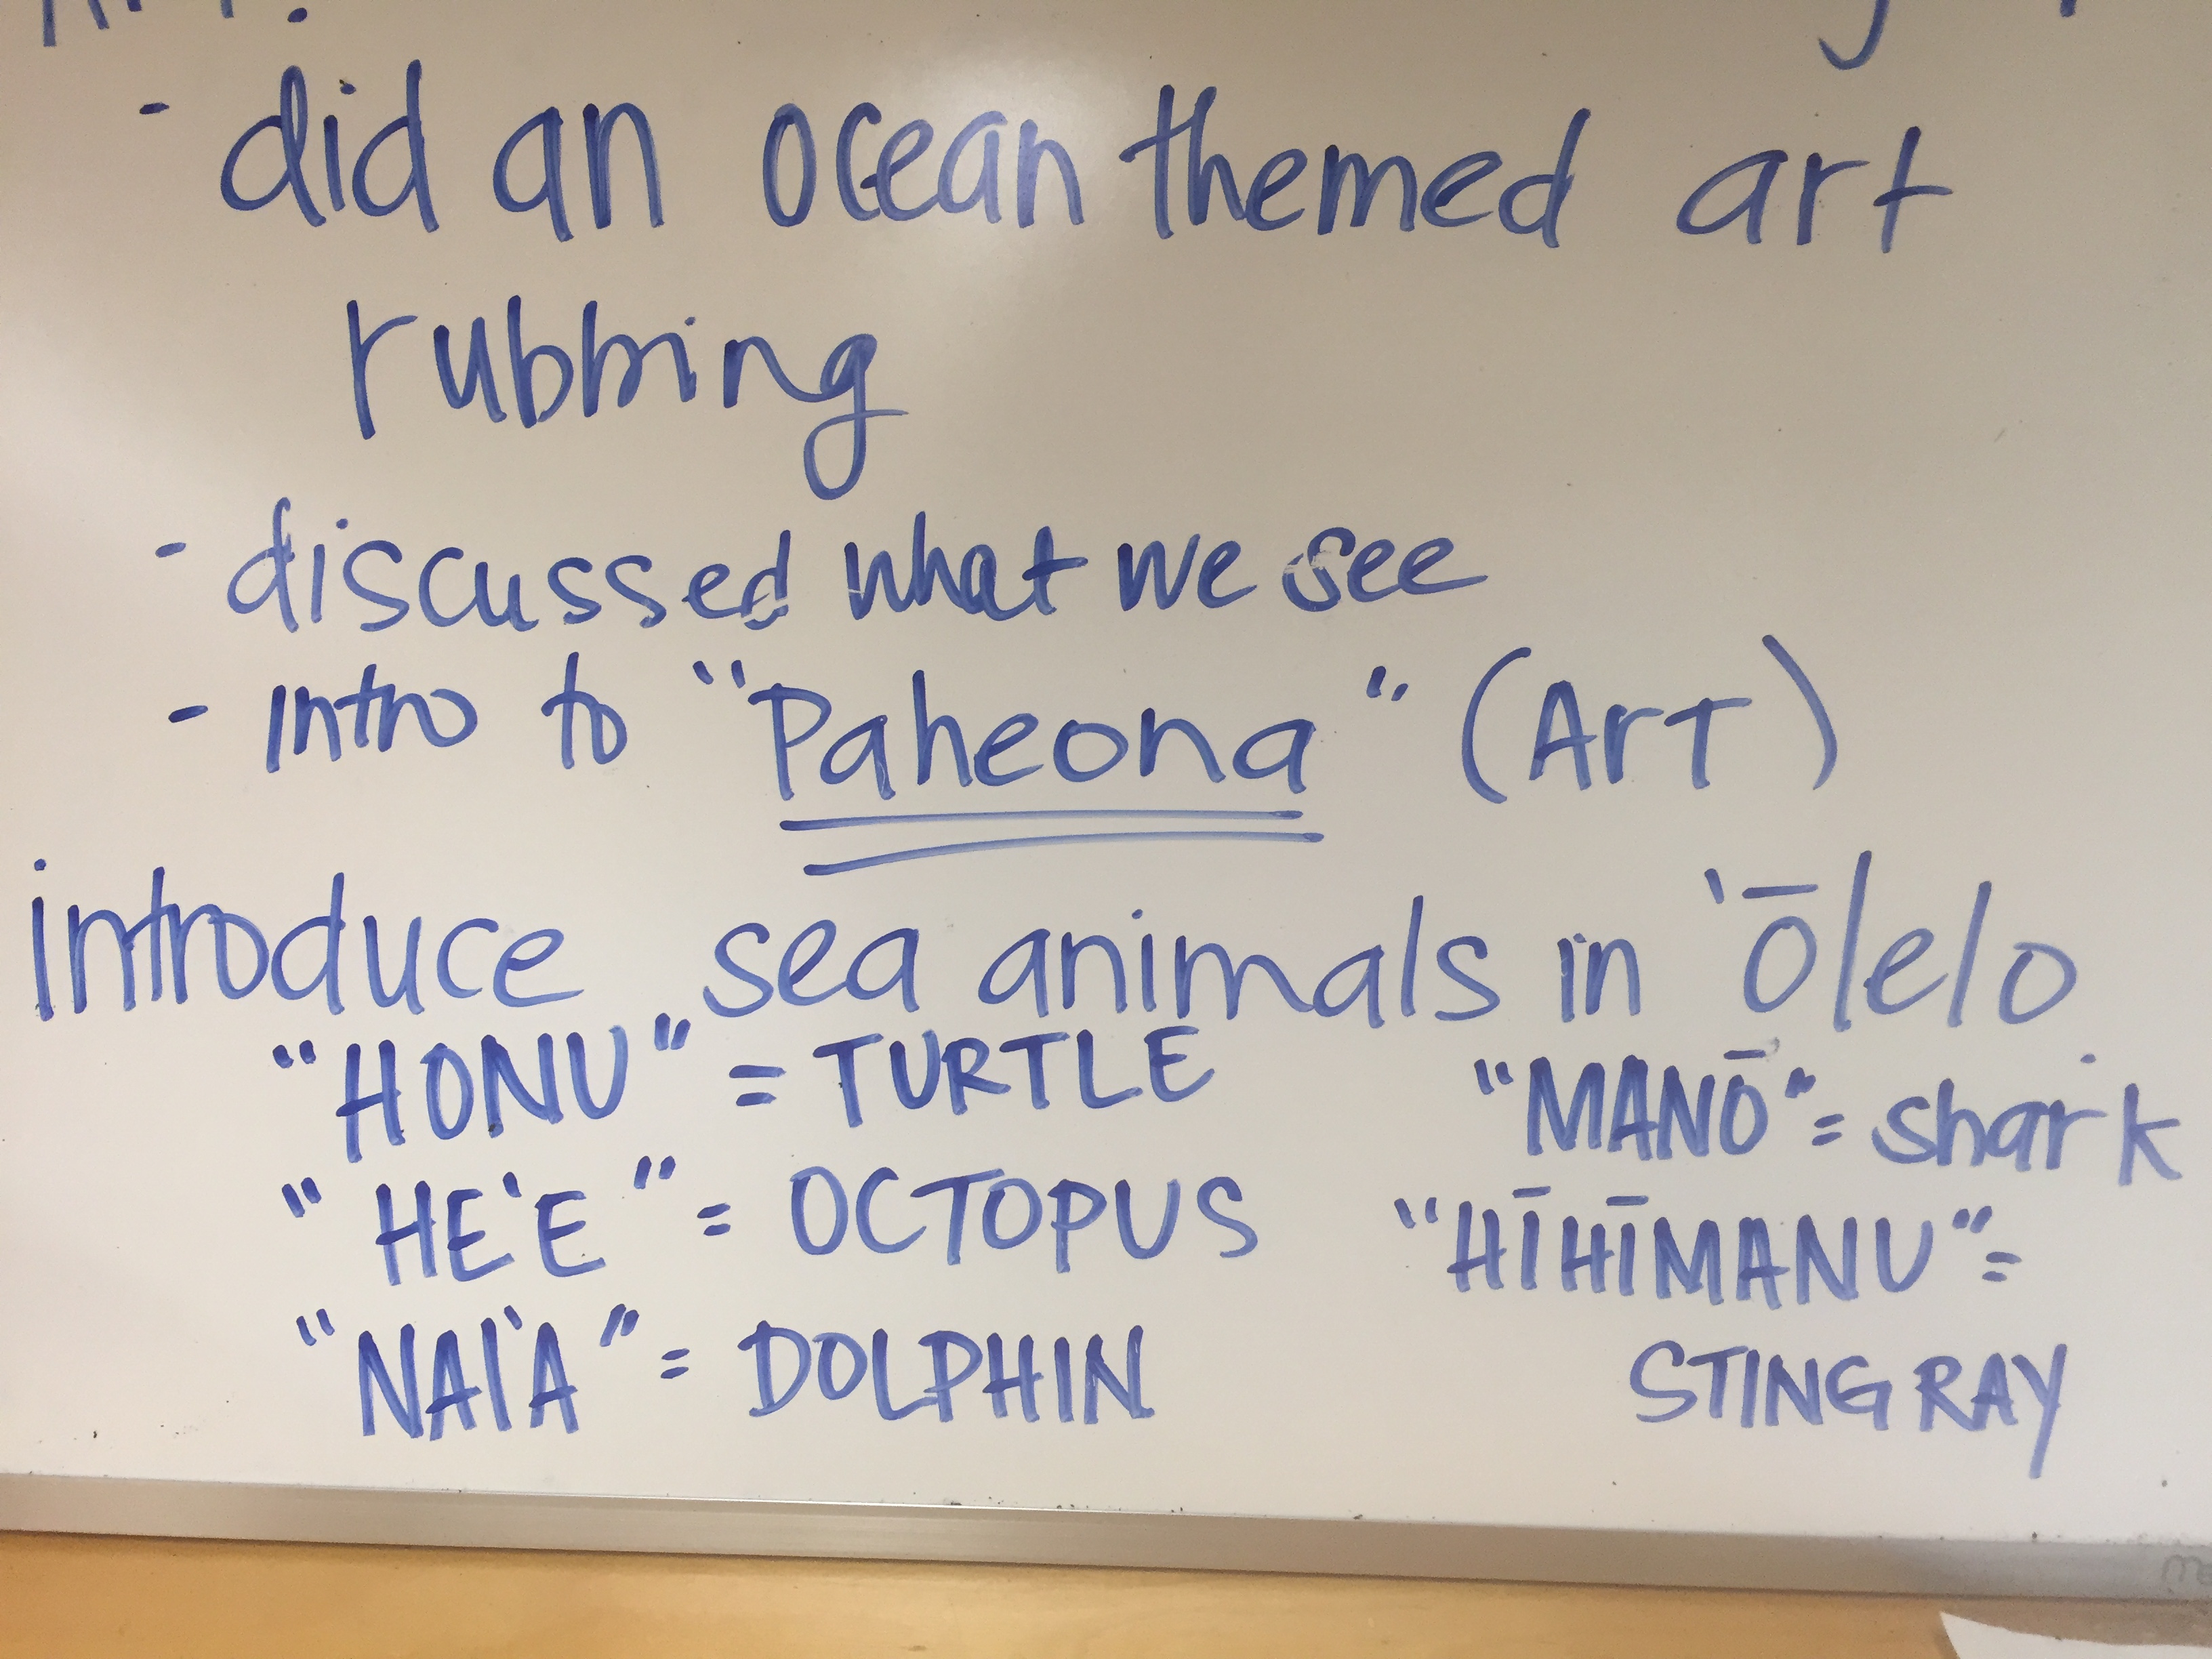 - did an ocean themed art
rubbing
- discussed what we see
- intro to "Paheona" (ArT)
introduce sea animals in 'ōlelo
"HONU" = TURTLE
"HE'E" = OCTOPUS
"NAI'A" = DOLPHIN
"MANŌ" = shark
"HĪHĪMANU" =
STINGRAY